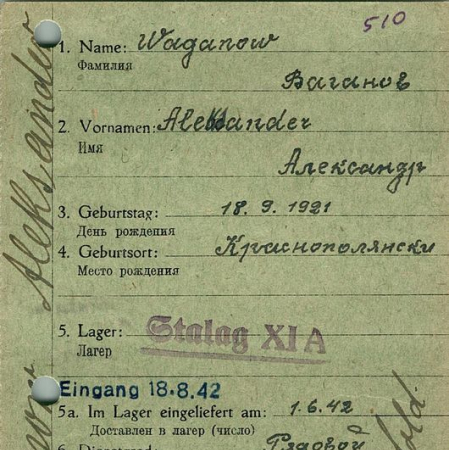 510
1. Name: Waganow
Фамилия
Ваганов
2. Vornamen: Aleksander
Имя
Александр
3. Geburtstag: 18. 9. 1921
День рождения
4. Geburtsort: Краснополянски
Место рождения
5. Lager: Stalag XI A
Лагерь
Eingang 18.8.42
5a. Im Lager eingeliefert am: 1.6.42
Доставлен в лагерь (число)
Рядовой
Aleksander